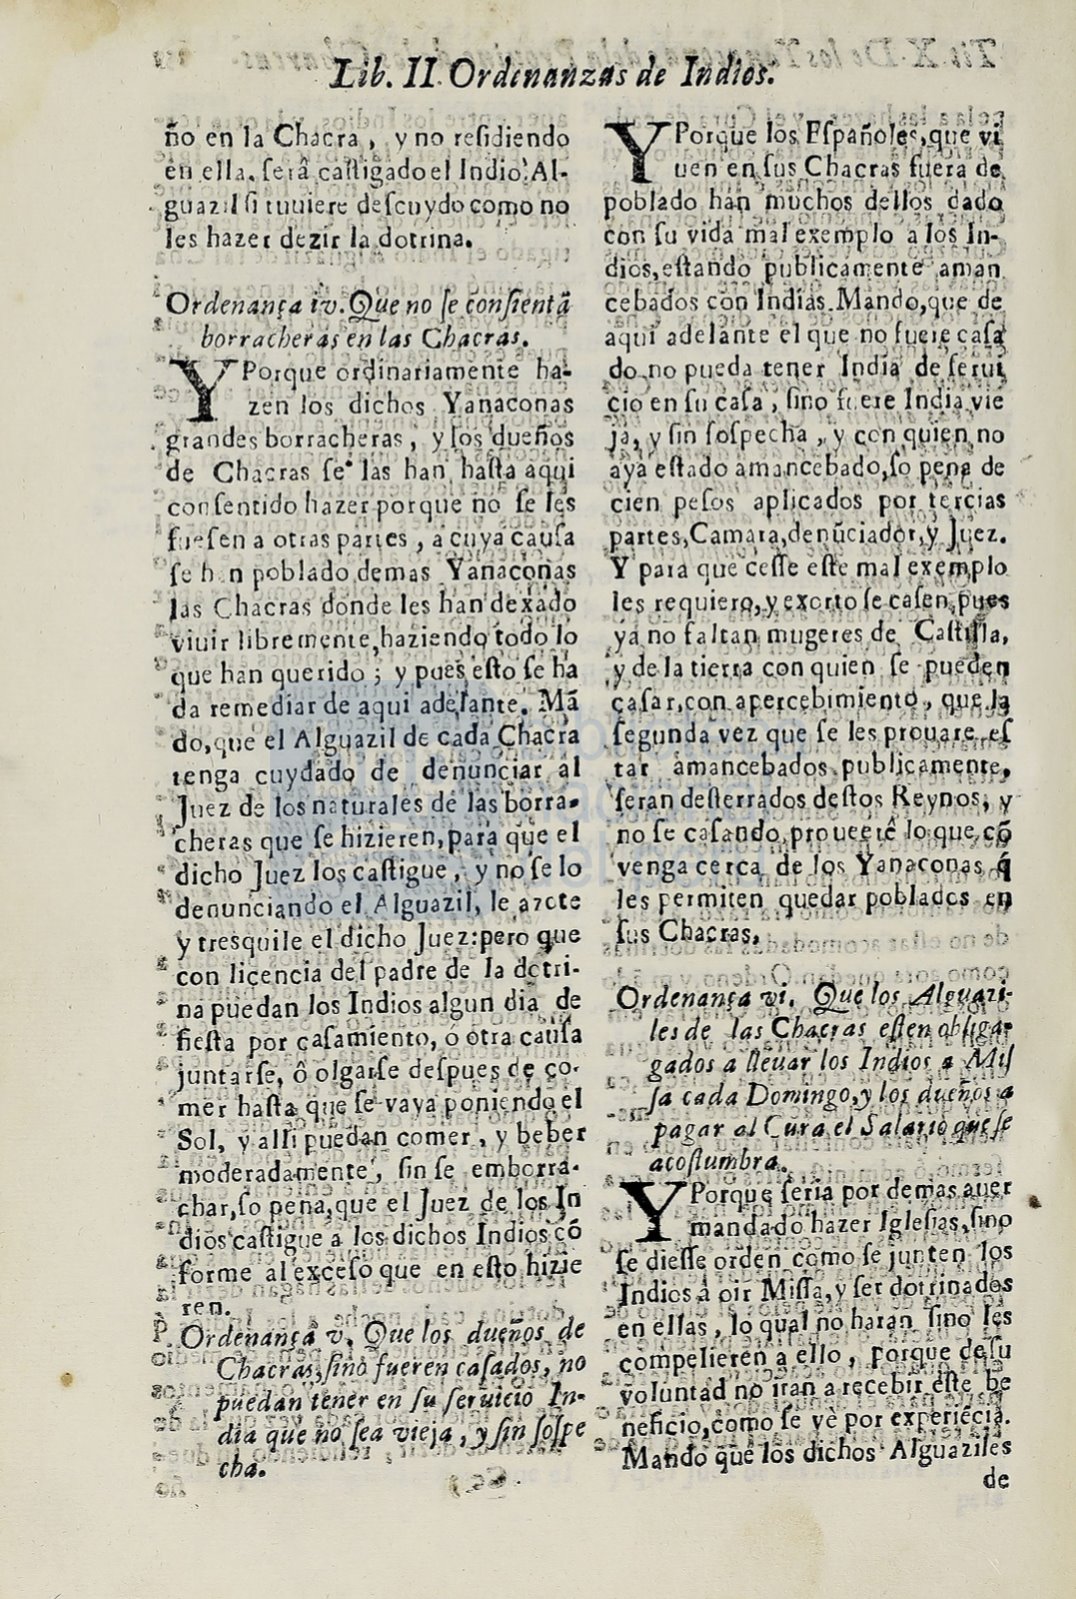 Lib. II. Ordenanzas de Indios.
ño en la Chacra, y no residiendo
en ella. serâ castigado el Indio Al-
guazil si tuuiere descuydo como no
les hazer dezir la dotrina.
Ordenança iv. Que no se consientã
borracheras en las Chacras.
Y Porque ordinariamente ha-
zen los dichos Yanaconas
grandes borracheras, y los dueños
de Chacras se las han hasta aqui
consentido hazer porque no se les
fuesen a otras partes, a cuya causa
se han poblado demas Yanaconas
las Chacras donde les han dexado
viuir libremente, haziendo todo lo
que han querido; y pues esto se ha
da remediar de aqui adelante. Mã
do, que el Alguazil de cada Chacra
tenga cuydado de denunciar al
Juez de los naturales de las borra-
cheras que se hizieren, para que el
dicho Juez los castigue, y no se lo
denunciando el Alguazil, le azote
y tresquile el dicho Juez: pero que
con licencia del padre de la dotri-
na puedan los Indios algun dia de
fiesta por casamiento, ó otra causa
juntarse, ô olgarse despues de co-
mer hasta que se vaya poniendo el
Sol, y alli puedan comer, y beber
moderadamente, sin se emborra-
char, so pena, que el Juez de los In
dios castigue a los dichos Indios cõ
forme al exceso que en esto hizie
ren.
Ordenança v. Que los dueños de
Chacras, sino fueren casados, no
puedan tener en su seruicio In-
dia que no sea vieja, y sin sospe
cha.
Y Porque los Españoles, que vi
uen en sus Chacras fuera de
poblado han muchos dellos dado
con su vida mal exemplo a los In-
dios, estando publicamente aman
cebados con Indias. Mando, que de
aqui adelante el que no fuere casa
do no pueda tener India de serui
cio en su casa, sino fuere India vie
ja, y sin sospecha, y con quien no
aya estado amancebado, so pena de
cien pesos aplicados por tercias
partes, Camara, denũciador, y Juez.
Y para que cesse este mal exemplo
les requiero, y exorto se casen, pues
ya no faltan mugeres de Castilla,
y de la tierra con quien se pueden
casar, con apercebimiento, que la
segunda vez que se les prouare es
tar amancebados publicamente,
seran desterrados destos Reynos, y
no se casando proueerê lo que cõ
venga cerca de los Yanaconas q̃
les permiten quedar poblados en
sus Chacras.
Ordenança vi. Que los Alguazi-
les de las Chacras esten obliga-
gados a lleuar los Indios a Mis
sa cada Domingo, y los dueños a
pagar al Cura el Salario que se
acostumbra.
Y Porque seria por demas auer
mandado hazer Iglesias, sino
se diesse orden como se junten los
Indios à oir Missa, y ser dotrinados
en ellas, lo qual no haran sino les
compelieren a ello, porque de su
voluntad no iran a recebir este be
neficio, como se vè por experiẽcia.
Mando que los dichos Alguaziles
de